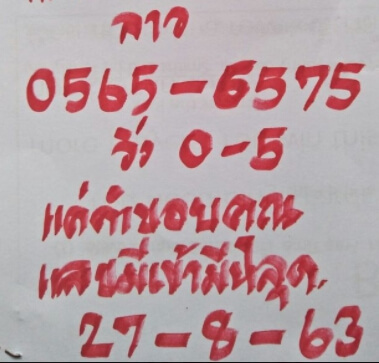 ลาว
0565-6575
วิ่ง 0-5
แค่คำขอบคุณ
เลขมีเข้ามีหลุด.
27-8-63